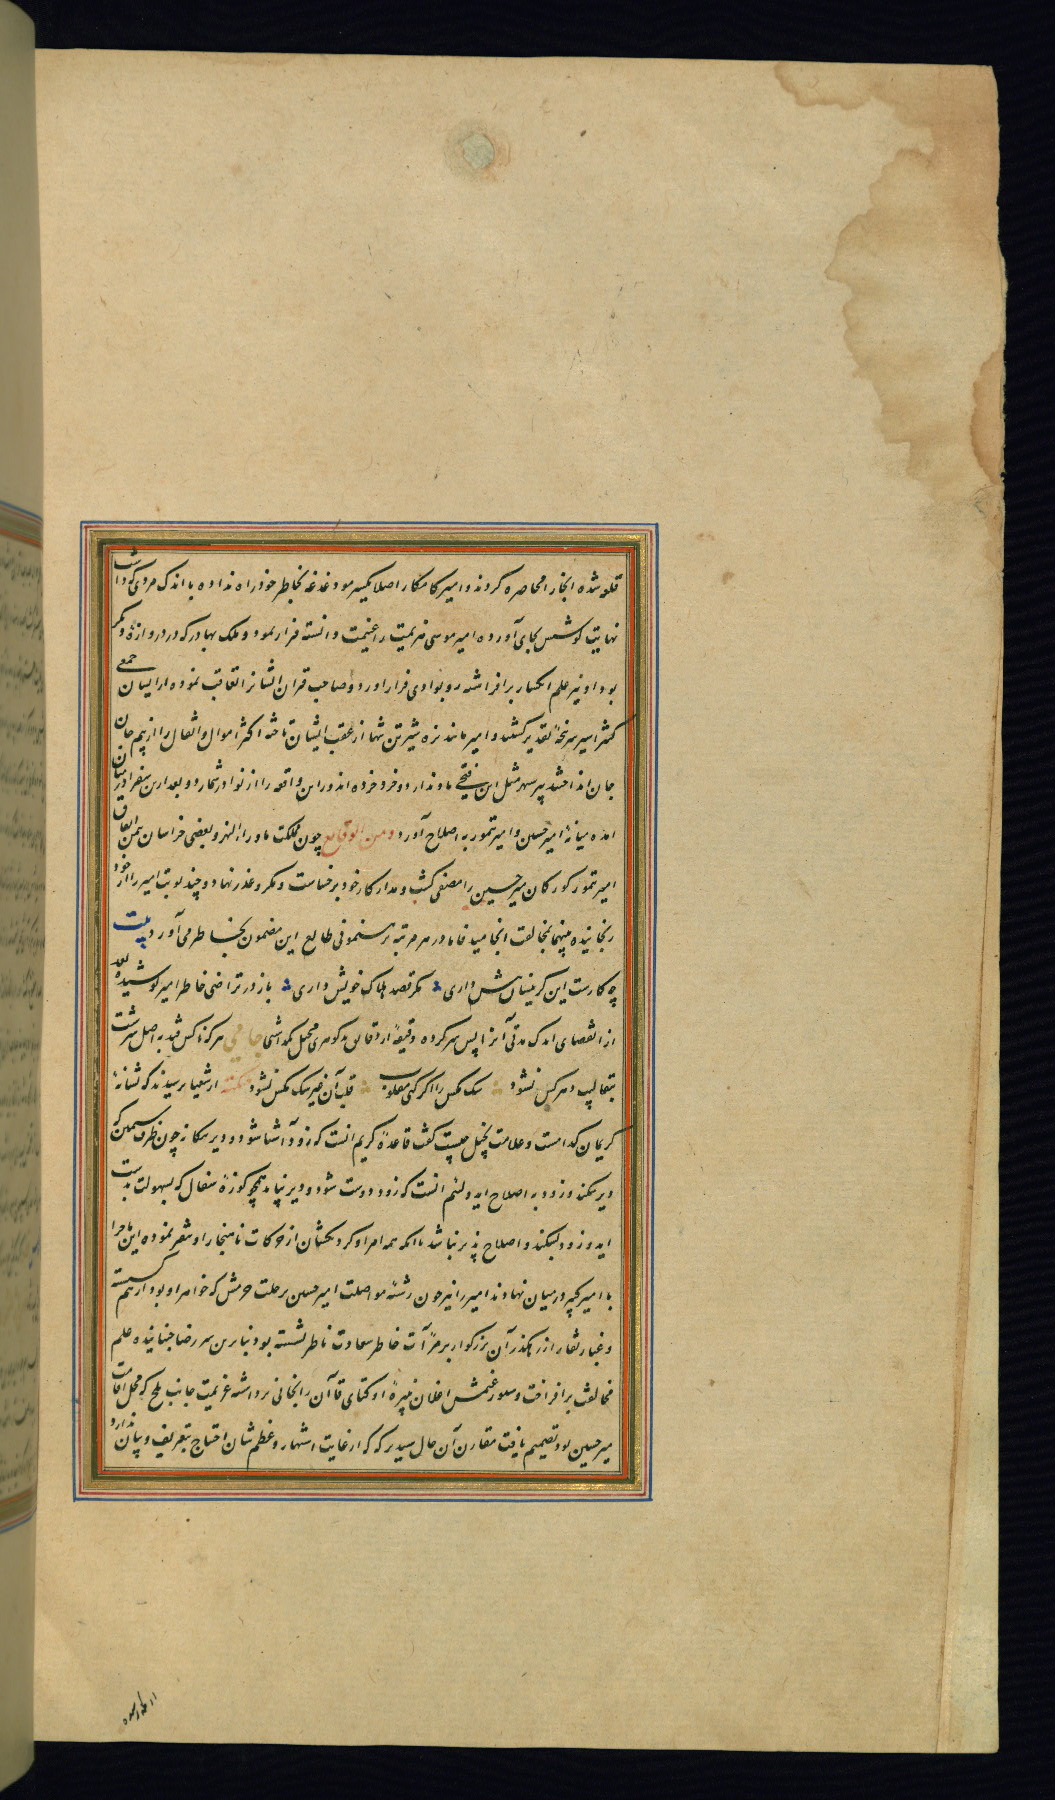 قلعه شده انجا را محاصره کردند و امیر کامکار اصلا یکسر مو دغدغه بخاطر خود راه نداده با اندک مردی که داشت
نهایت کوشش بجای آورده امیر موسی هزیمت را غنیمت دانسته فرار نمود و ملک بهادر که در دروازهٔ دیگر
بود او نیز علم انکسار برافراشته رو بوادی فرار آورد و صاحب قران ایشانرا تعاقب نموده از ایشان جمعی
کثیر اسیر سر پنجهٔ تقدیر کشتند و امیر مانند نره شیر تن تنها از عقب ایشان تاخته اکثر اموال و اثقال را از بیم جان
جان انداختند پیر سپهر مثل این فتحی یاد ندارد و خرد خرده اندوز این واقعه را از نوادر شمارد و بعد ازین سفرا درمیان
امده میانهٔ امیر حسین و امیر تمور به اصلاح آورد ومن الوقایع چون مملکت ماوراء النهر و بعضی خراسان بیمن اتفاق
امیر تمور کورکان میر حسین را مصفی کشت و مدار کار خود بر خساست و مکر و غدر نهاد و چند نوبت امیر را از خود
رنجانیده بمخالفت انجامید فاما در هر مرتبه برهنمونی طالع این مضمون بخاطر می آورد بیت
چه کارست این کزینسان پیش داری مکر قصد هلاک خویش داری باز در تراضی خاطر امیر کوشیده بعد
از انقضای اندک مدتی آنرا پس سر کرده دقیقهٔ از دقایق بدکوهری مهمل نکذاشتی جامی هر که ناکس فتد به اصل سرشت
بتقالیب دهر کس نشود سک مکس را اکر کنی مقلوب قلب آن غیر سک مکس نشود نکته از شعیا پرسیدند که نشانهٔ
کریمان کدامست و علامت بخیل چیست کفت قاعدهٔ کریم انست که زود آشنا شود و دیر بیکانه چون ظرف سیمین که
دیر شکند و زود به اصلاح اید و لئیم انست که زود دوست شود و دیر نپاید همچو کوزهٔ سفال که بسهولت بدست
اید و زود بشکند و اصلاح پذیر نباشد تا انکه همه امرا و کردنکشان از حرکات ناهنجار او متنفر نموده این ماجرا
با امیر کبیر درمیان نهادند امیر را نیز چون رشتهٔ مواصلت امیر حسین برحلت حرمش که خواهر او بود از هم کسسته
و غبار نقار از رهکذر آن بزرکوار بر مرآت خاطر سعادت ناظر نشسته بود بنابرین سر رضا جنبانیده علم
مخالفت برافراخت و سیورغتمش اغلان نبیرهٔ اوکتای قاآن را بخانی برداشته عزیمت جانب بلخ که محل اقامت
میر حسین بود تصمیم یافت مقارن آن حال سید برکه که از غایت اشتهار و عظم شان احتیاج بتعریف و بیان ندارد